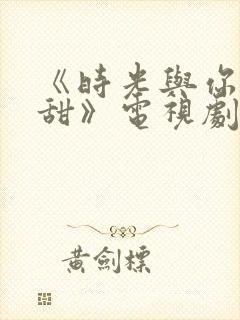 《時光與你
甜》電視劇
黃劍標